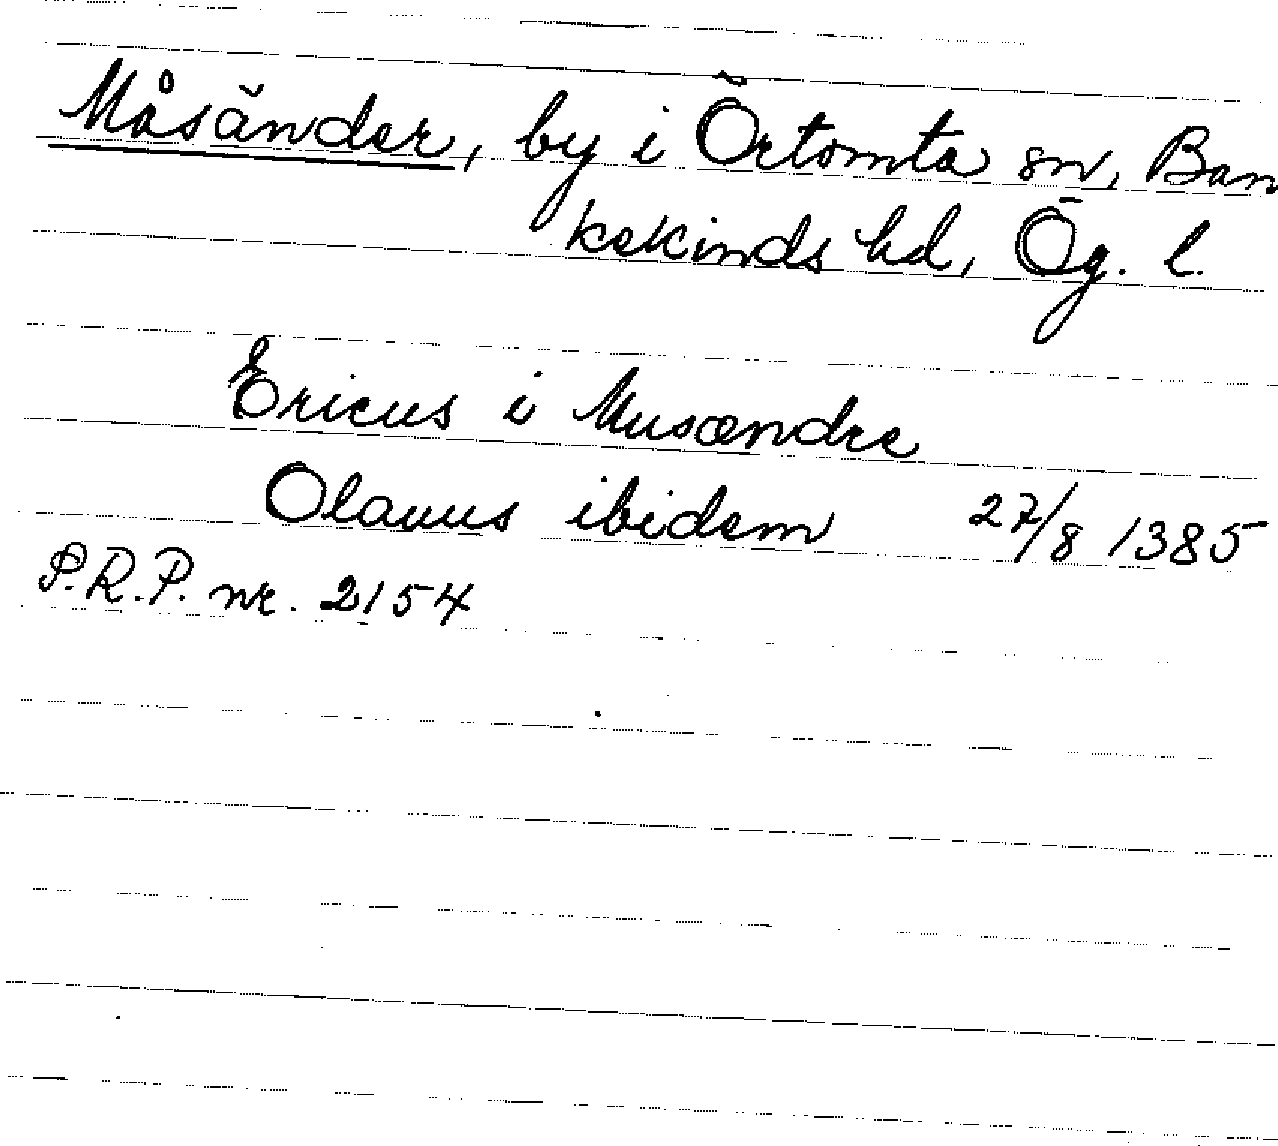 Måsänder, by i Örtomta sn, Ban
kekinds hd, Ög. l.
Ericus i Musændre
Olauus ibidem 27/8 1385
P.R.P. nr. 2154